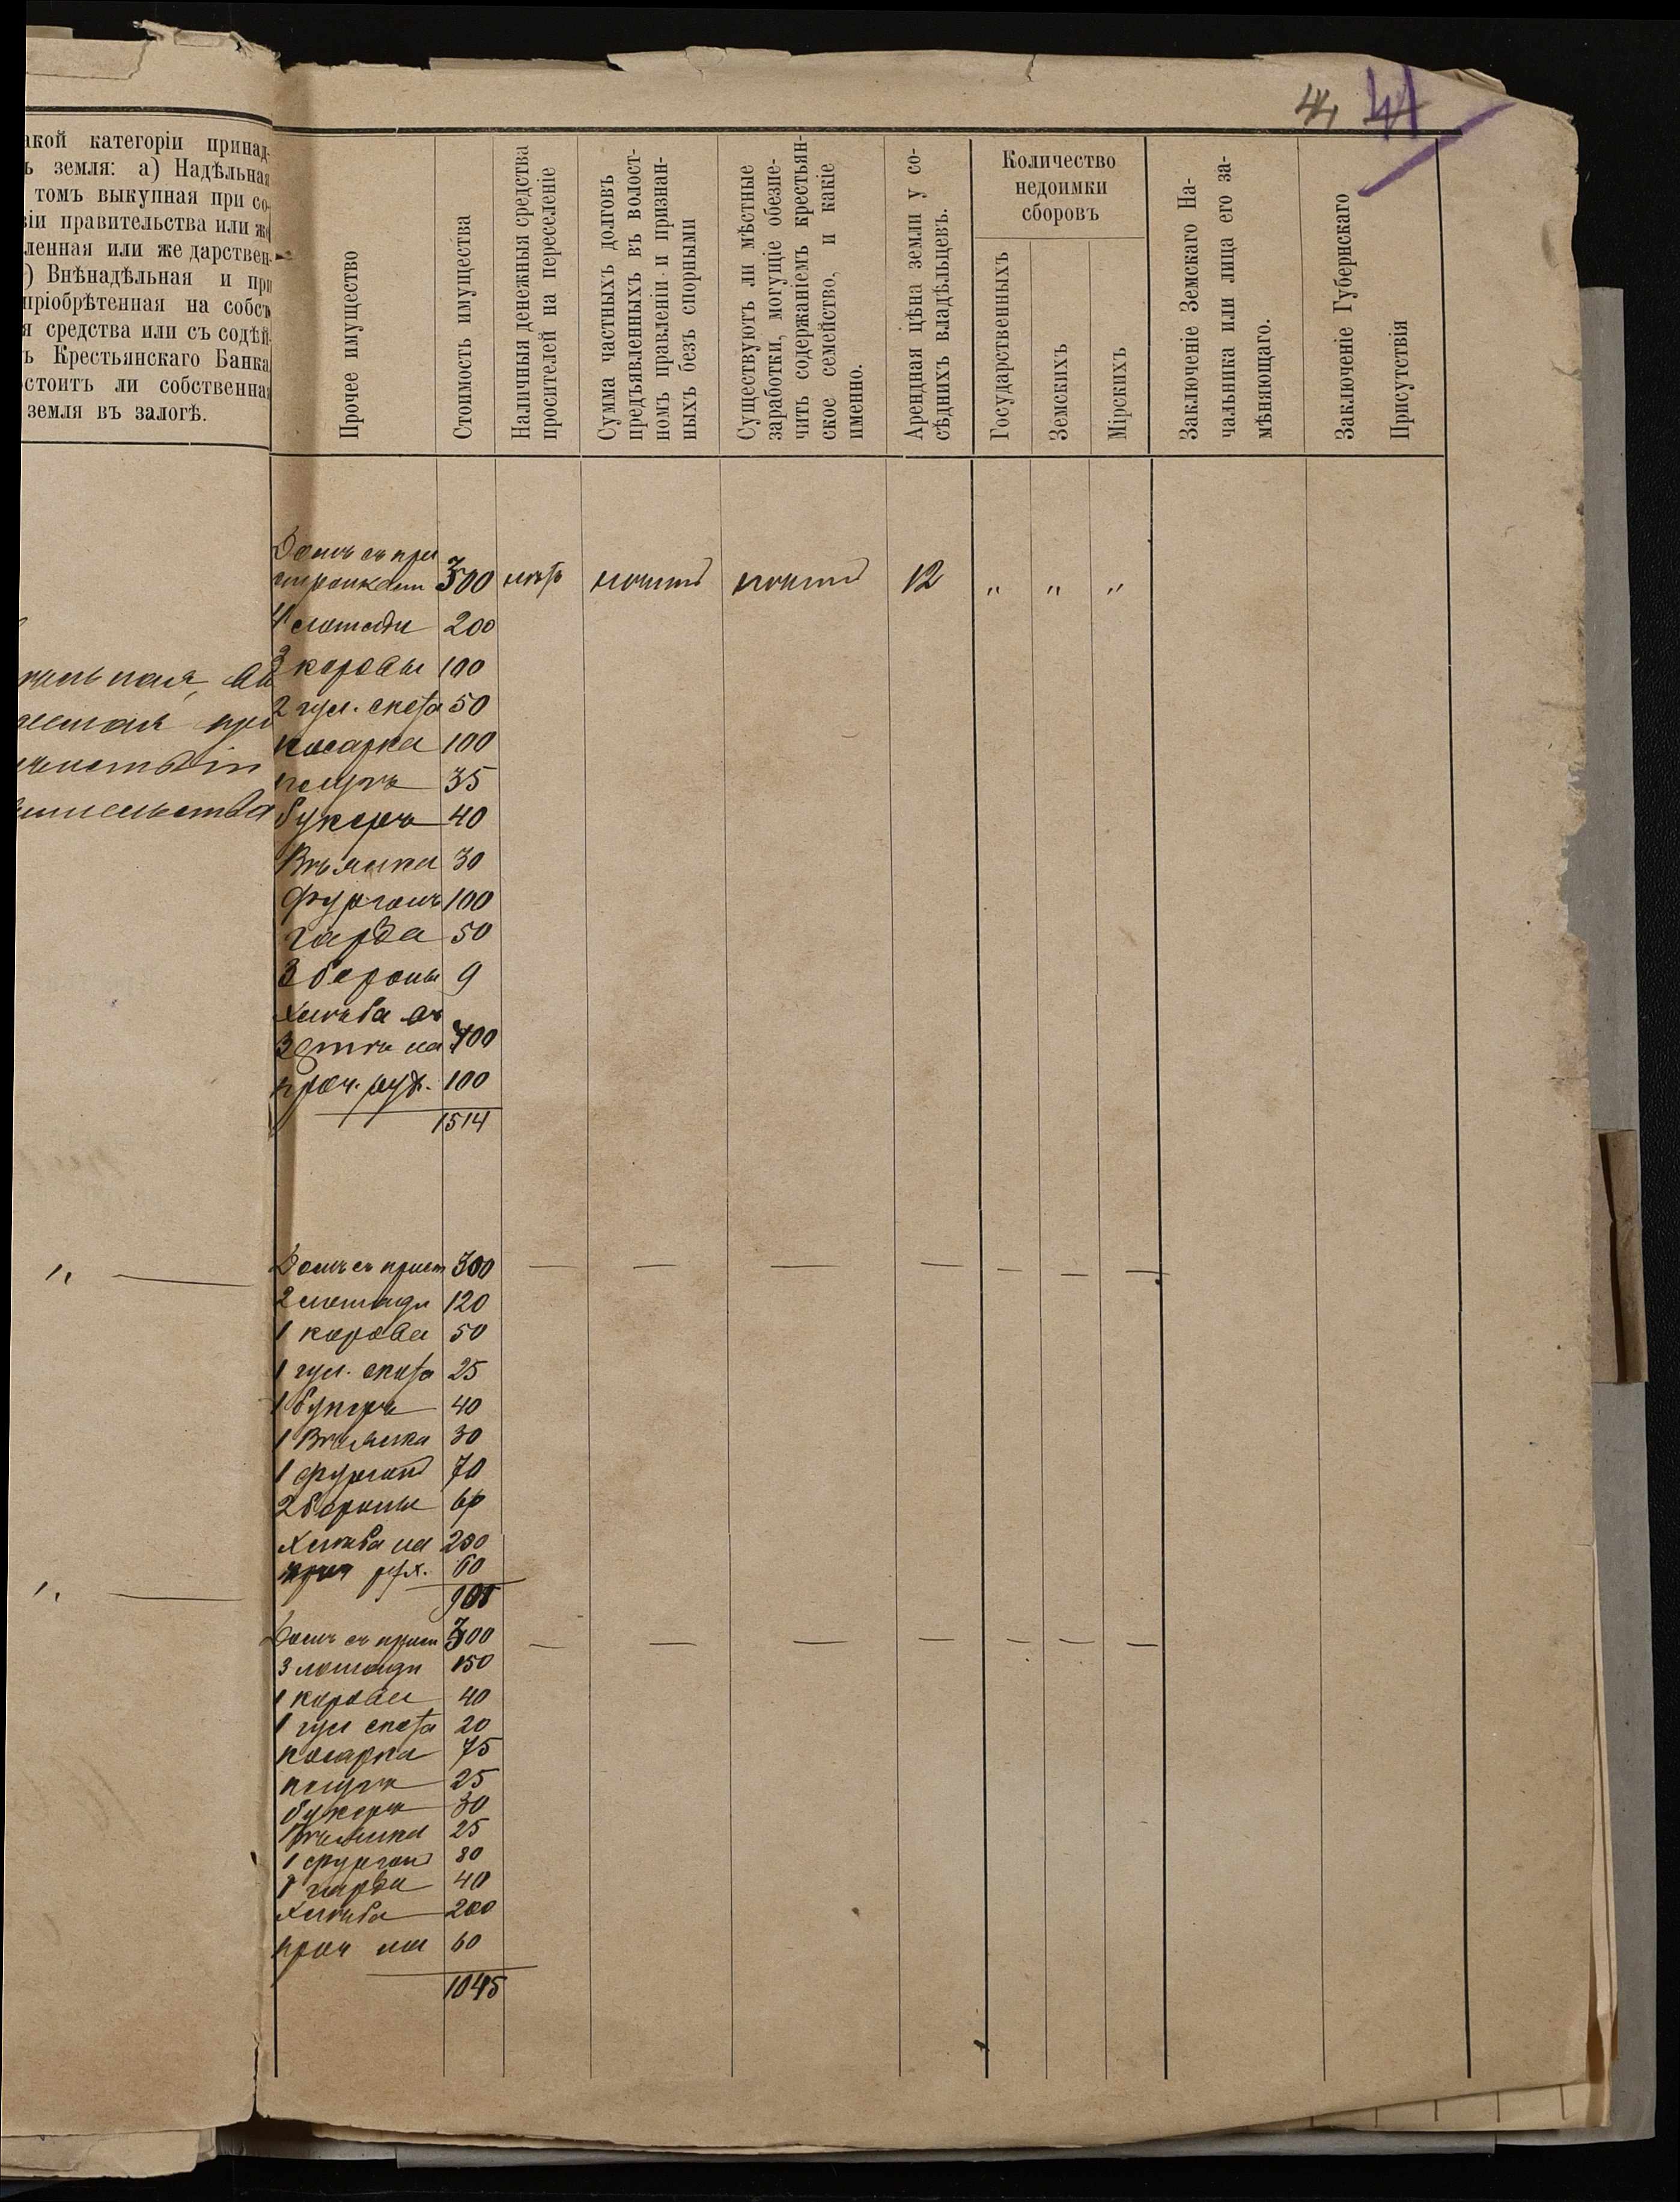 44 44
акой категоріи принад-
ь земля: а) Надѣльная
томъ выкупная при со-
віи правительства или же
ленная или же дарствен-
) Внѣнадѣльная и при
пріобрѣтенная на собст
я средства или съ содѣй-
ъ Крестьянскаго Банка
стоитъ ли собственная
земля въ залогѣ.
Прочее имущество
Стоимость имущества
Наличныя денежныя средства
просителей на переселеніе
Сумма частныхъ долговъ
предъявленныхъ въ волост-
номъ правленіи и признан-
ныхъ безъ спорными
Существуютъ ли мѣстные
заработки, могущіе обезпе-
чить содержаніемъ крестьян-
ское семейство, и какіе
именно.
Арендная цѣна земли у со-
сѣднихъ владѣльцевъ.
Количество
недоимки
сборовъ
Государственныхъ
Земскихъ
Мірскихъ
Заключеніе Земскаго На-
чальника или лица его за-
мѣняющаго.
Заключеніе Губернскаго
Присутствія
Домъ съ при
стройками 300 нѣтъ 12 " " "
4 лошади 200
3 коровы 100
2 гул. скота 50
косарка 100
плугъ 35
букеръ 40
Вѣялка 30
Фургонъ 100
гарба 50
3 бороны 9
Хлѣба съ
на 400
проч. рух. 100
1514
" — Домъ съ прист 300 — — — — — — —
2 лошади 120
1 корова 50
1 гул. скота 25
1 букеръ 40
1 Вѣялка 30
1 фургонъ 70
2 бороны
Хлѣба на 200
проч рух. 60
" —
Домъ съ прист 300 — — — — — — —
3 лошади 150
1 корова 40
1 гул скота 20
косарка 75
плугъ 25
букеръ 30
Вѣялка 25
1 фургонъ 80
1 гарба 40
Хлѣба 200
проч им 60
1045